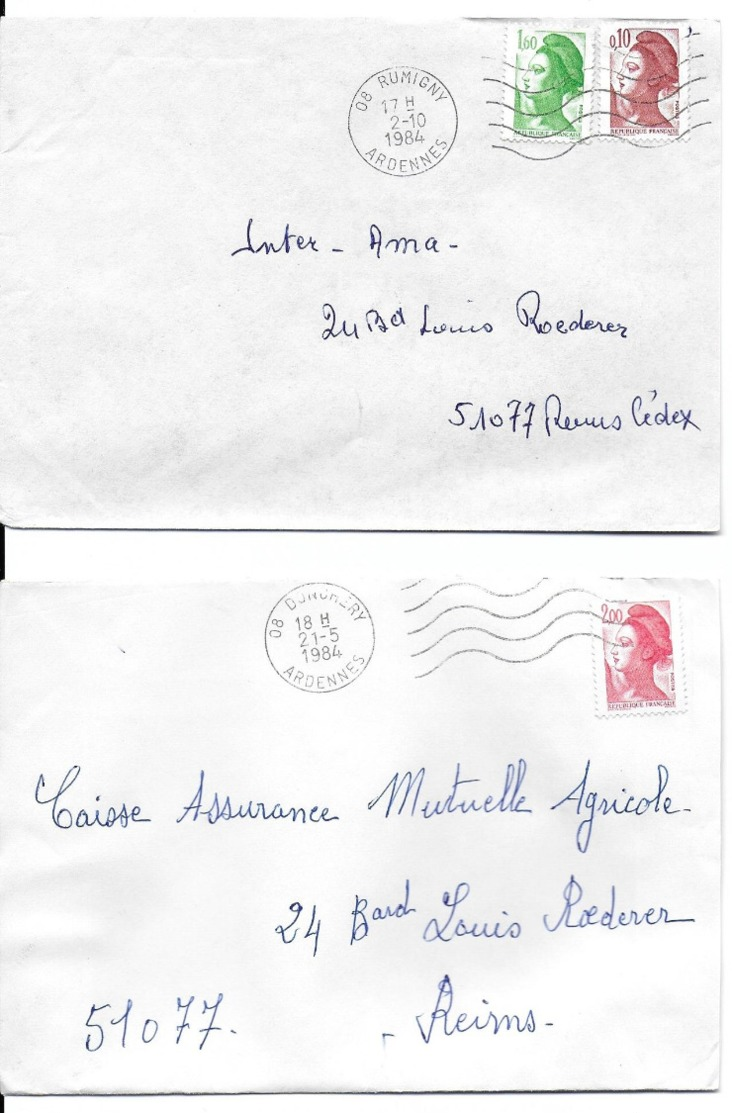 08 RUMIGNY
17 H
2-10
1984
ARDENNES
1,60
POSTES
REPUBLIQUE FRANÇAISE
0,10
POSTES
REPUBLIQUE FRANÇAISE
Inter - Ama -
24 Bd Louis Roederer
51077 Reims Cédex
08 DONCHERY
18 H
21-5
1984
ARDENNES
2,00
POSTES
REPUBLIQUE FRANÇAISE
Caisse Assurance Mutuelle Agricole-
24 Bard Louis Rœderer
51077. - Reims-